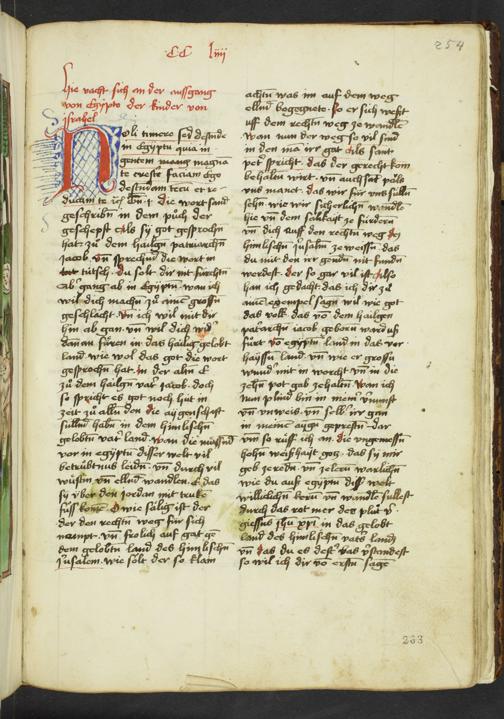 CC liiij
254
Hie vacht sich an der aussgang
von Egipto der kinder von
israhel
Noli timere sed destende
in Egiptu quia in
gentem magna
te creste faciam Ego
destendam tecu et re
ducam te die wort sand
geschribn in dem puch der
geschepf Als sy got gesprochn
hat zu dem hailign patriarchn
Jacob vn sprechnd die wort in
tutsch du solt dir nit furchtn
ab gang ab in Egiptu wan ich
wil dich machn zu eine grossn
geschlacht vn ich wil mit dir
hin ab gan vn wil dich wid
dannan furen in das hailig gelobt
land wie wol das got die wort
gesprochn hat in der altn E
zu dem hailgn vat Jacob doch
so spricht es got noch hut in
zeit zu alln den die aygenschaft
sullnd habn in dem himlischn
gelobtn vat land wan die mussnd
vor in egiptu disser welt vil
betrubtnus leidn vn durch vil
wustin vn ellnd wandlen E das
sy vber den jordan mit truke
fuss kome O wie salig ist der
der den rechtn weg fur sich
nempt vn frolich auf gat gen
dem gelobtn land des himlischn
Jerusalem wie solt der so klam
achtn was im auf dem weg
ellnd begegnote so er sich weist
uff dem rechtn weg ze wandle
wan nun der weg so vil sind
in den ma irr gat Als sant
pet spricht das der gerecht kom
behaltn wirt vn auch sat pals
vns manet das wir fur vns sulln
sehn wie wir sicherlichn wandle
hie vn dem salikait ze furdern
vn dich auff den rechtn weg des
himlischn Jrusalm ze weissn das
du mit den irr gendn nit fundn
werdest der so gar vil ist Also
han ich gedacht das ich dir zu
aine exempel sagn wil wie got
das volk das vo dem hailgen
patarchn jacob geborn ward uss
furt vo egyptu land in das ver
hayssn land vn wie er grossu
wund mit in worcht vn in die
zehn pot gab zehaltn Wan ich
nun plind bin in mein v̈nunft
vn vnweis vn selb irr gan
in meine augn geprestn dar
vm so ruff ich an die vngemessn
hohn weishayt gotz das sy mir
geb zeredn vn zelern warlichn
wie du auss egiptu diss welt
willichlichn kern vn wandln sullest
durch das rot mer des plut v
giessns jhu xpi in das gelobt
land des himlischn vats land
vn das du es dest bas v̈standest
so wil ich dir vo erstn sage
263